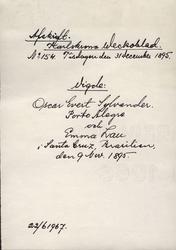 Afskrift.
Karlskrona Weckoblad.
No 154. Tisdagen den 31 December 1895.
Vigde:
Oscar Evert Sylvander.
Porto Alegre
och
Emma Lau
i Santa Cruz, Brasilien,
den 9 Nov. 1895.
22/6 1967.